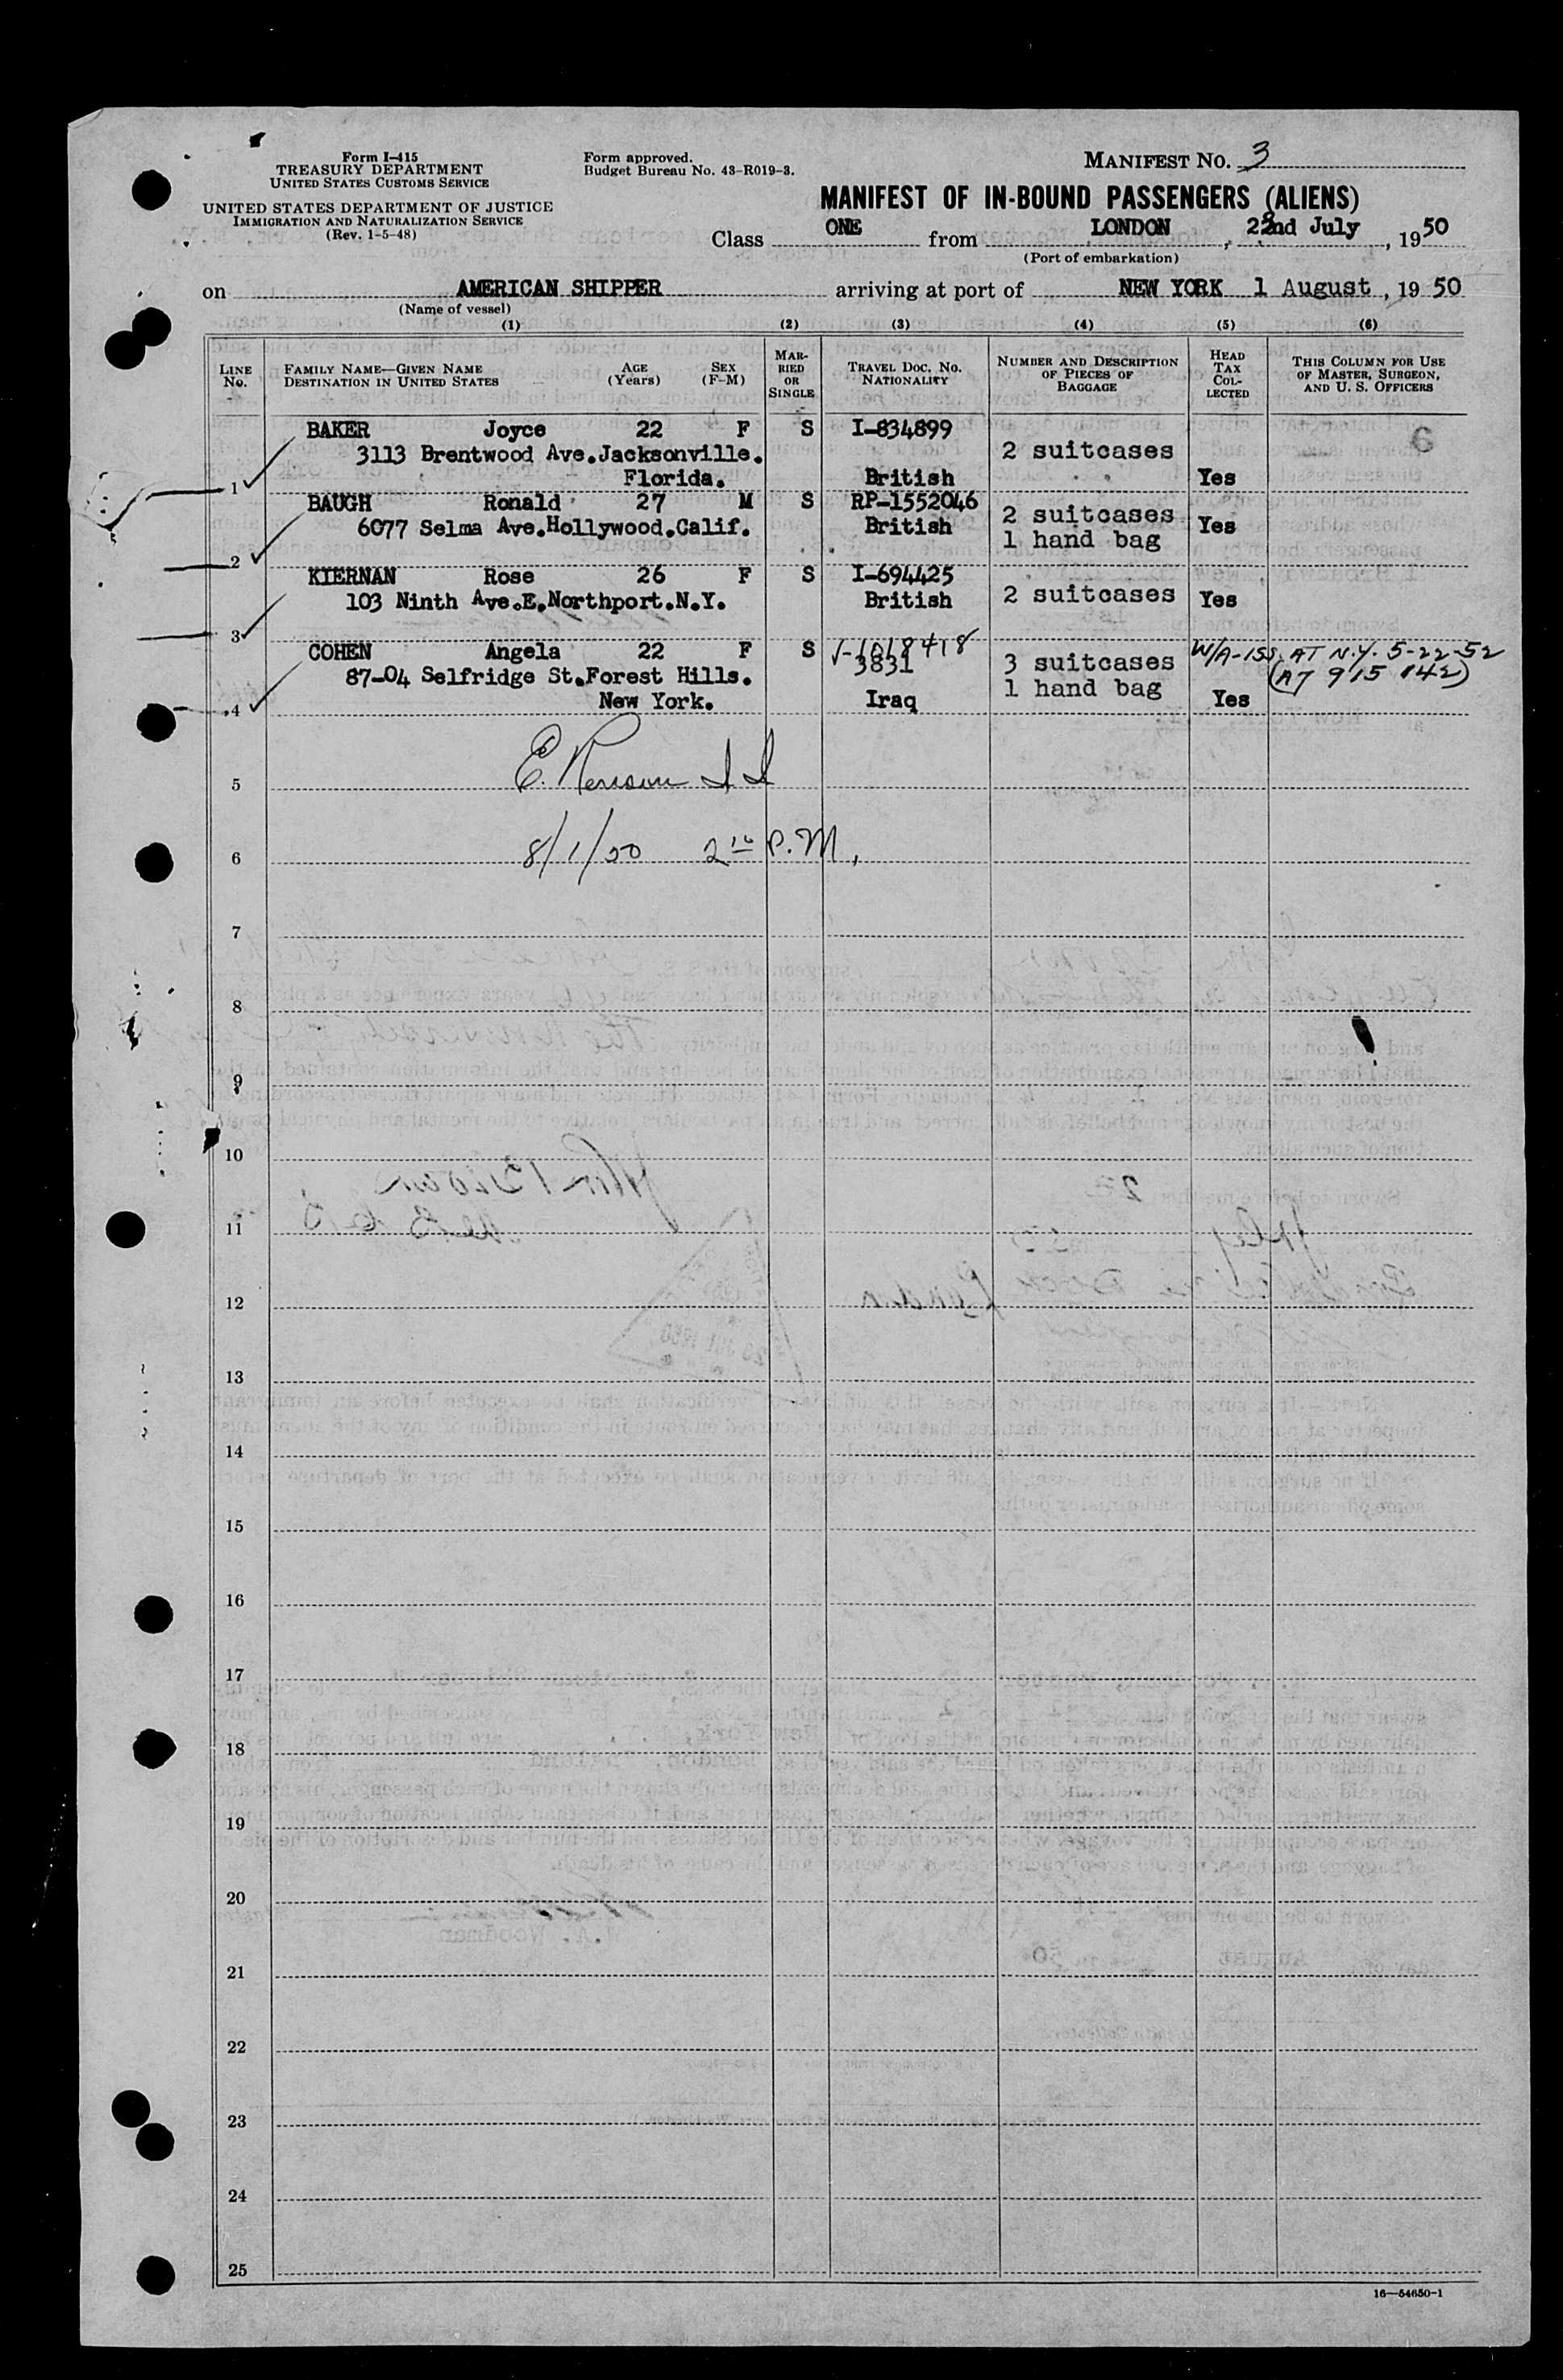 Form I-415
TREASURY DEPARTMENT
UNITED STATES CUSTOMS SERVICE
UNITED STATES DEPARTMENT OF JUSTICE
IMMIGRATION AND NATURALIZATION SERVICE
(Rev. 1-5-48)
Form approved.
Budget Bureau No. 43-R019-3.
MANIFEST NO. 3
MANIFEST OF IN-BOUND PASSENGERS (ALIENS)
Class ONE from LONDON, 22nd July, 1950
(Port of embarkation)
on AMERICAN SHIPPER arriving at port of NEW YORK 1 August, 1950
(Name of vessel)
(1) (2) (3) (4) (5) (6)
LINE No. FAMILY NAME—GIVEN NAME DESTINATION IN UNITED STATES AGE (Years) SEX (F-M) MARRIED OR SINGLE TRAVEL DOC. NO. NATIONALITY NUMBER AND DESCRIPTION OF PIECES OF BAGGAGE HEAD TAX COLLECTED THIS COLUMN FOR USE OF MASTER, SURGEON, AND U. S. OFFICERS
BAKER Joyce 22 F S I-834899
3113 Brentwood Ave.Jacksonville. 2 suitcases 6
1 Florida. British Yes
BAUGH Ronald 27 M S RP-1552046 2 suitcases
6077 Selma Ave.Hollywood.Calif. British 1 hand bag Yes
2
KIERNAN Rose 26 F S I-694425
103 Ninth Ave.E.Northport.N.Y. British 2 suitcases Yes
3
COHEN Angela 22 F S V-1018418 W/A-155 AT N.Y. 5-22-52
3831 3 suitcases (A7 915 142)
87-04 Selfridge St.Forest Hills. 1 hand bag
4 New York. Iraq Yes
5 E.
6 8/1/50 2 P.M.
7
8
9
10
11
12
13
14
15
16
17
18
19
20
21
22
23
24
25
16—54650-1